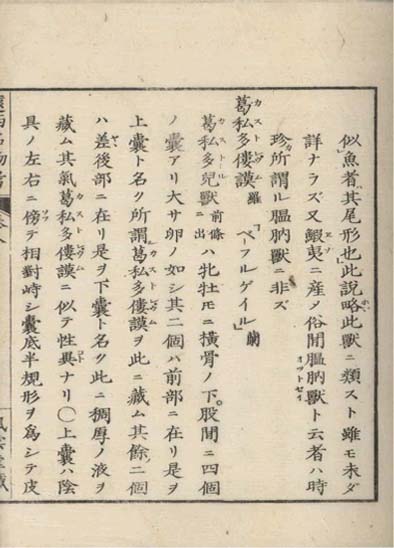 似魚者其尾形也」此説略此獸ニ類スト雖モ未ダ
詳ナラズ又蝦夷ニ産メ俗間膃肭獸ト云者ハ時
珍所謂ル膃肭獸ニ非ズ
葛私多僂謨 羅 「ベーフルゲイル」蘭
葛私多兒獸 前條ニ出 ハ牝牡モニ横骨ノ下。股間ニ四個
ノ囊アリ大サ卵ノ如シ其二個ハ前部ニ在リ是ヲ
上囊ト名ク所謂葛私多僂謨ヲ此ニ藏ム其餘二個
ハ差後部ニ在リ是ヲ下囊ト名ク此ニ稠厚ノ液ヲ
藏ム其氣葛私多僂謨ニ似テ性異ナリ〇上囊ハ陰
具ノ左右ニ傍テ相對峙シ囊底半規形ヲ爲シテ皮